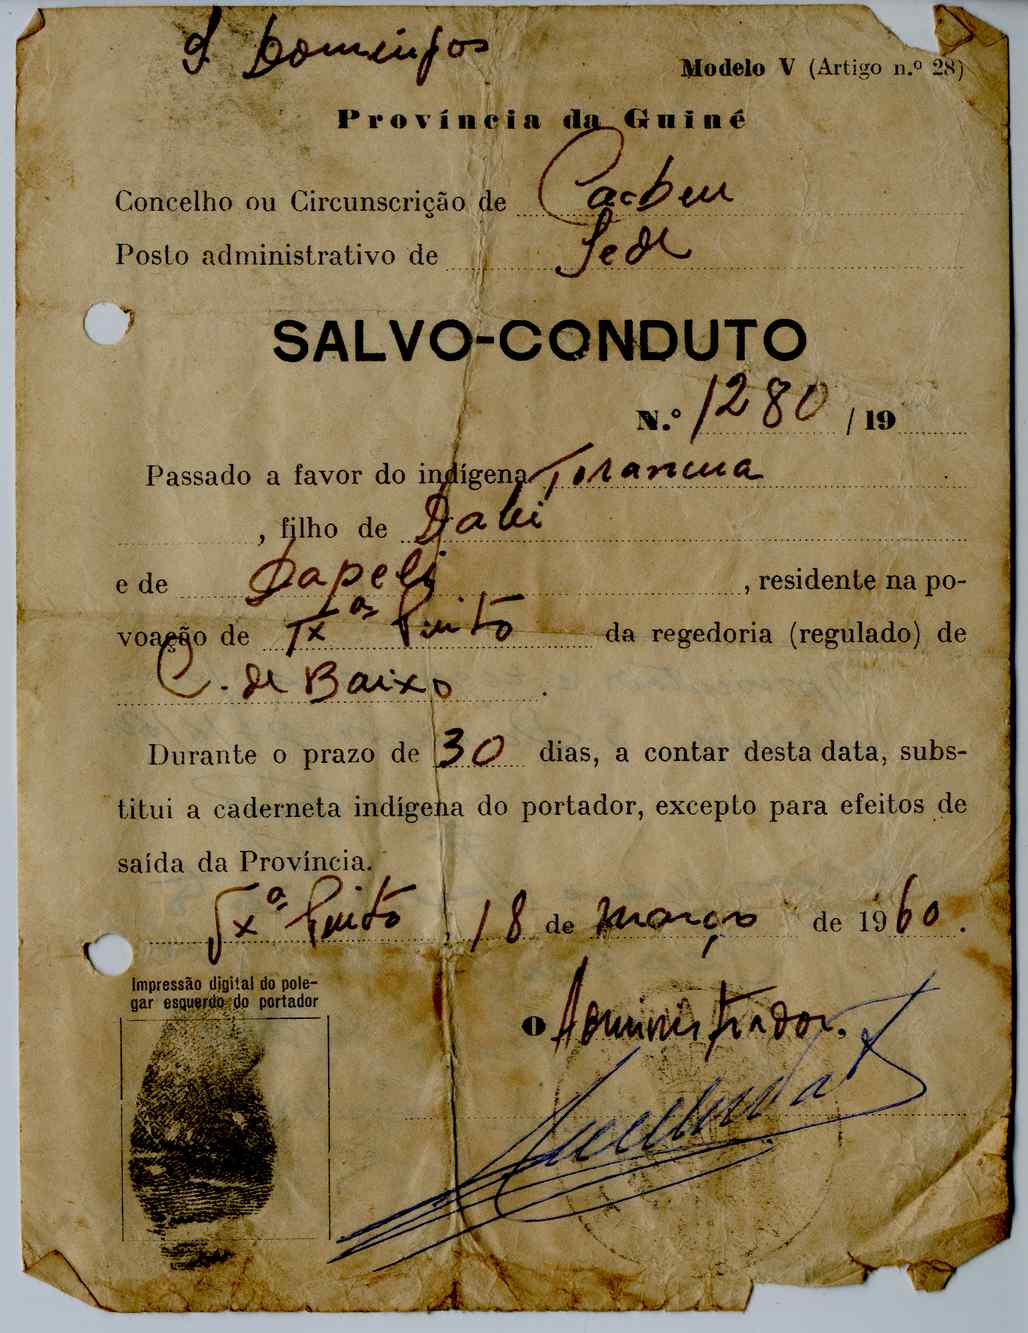 S. Domingos
Modelo V (Artigo n.º 28)
Província da Guiné
Concelho ou Circunscrição de Cacheu
Posto administrativo de Sede
SALVO-CONDUTO
N.º 1280 / 19
Passado a favor do indígena
, filho de Dabi
e de Dapeli , residente na po-
voação de Tx.as Pinto da regedoria (regulado) de
C. de Baixo .
Durante o prazo de 30 dias, a contar desta data, subs-
titui a caderneta indígena do portador, excepto para efeitos de
saída da Província.
Tx.ª Pinto , 18 de março de 1960.
Impressão digital do pole-
gar esquerdo do portador
O Administrador,